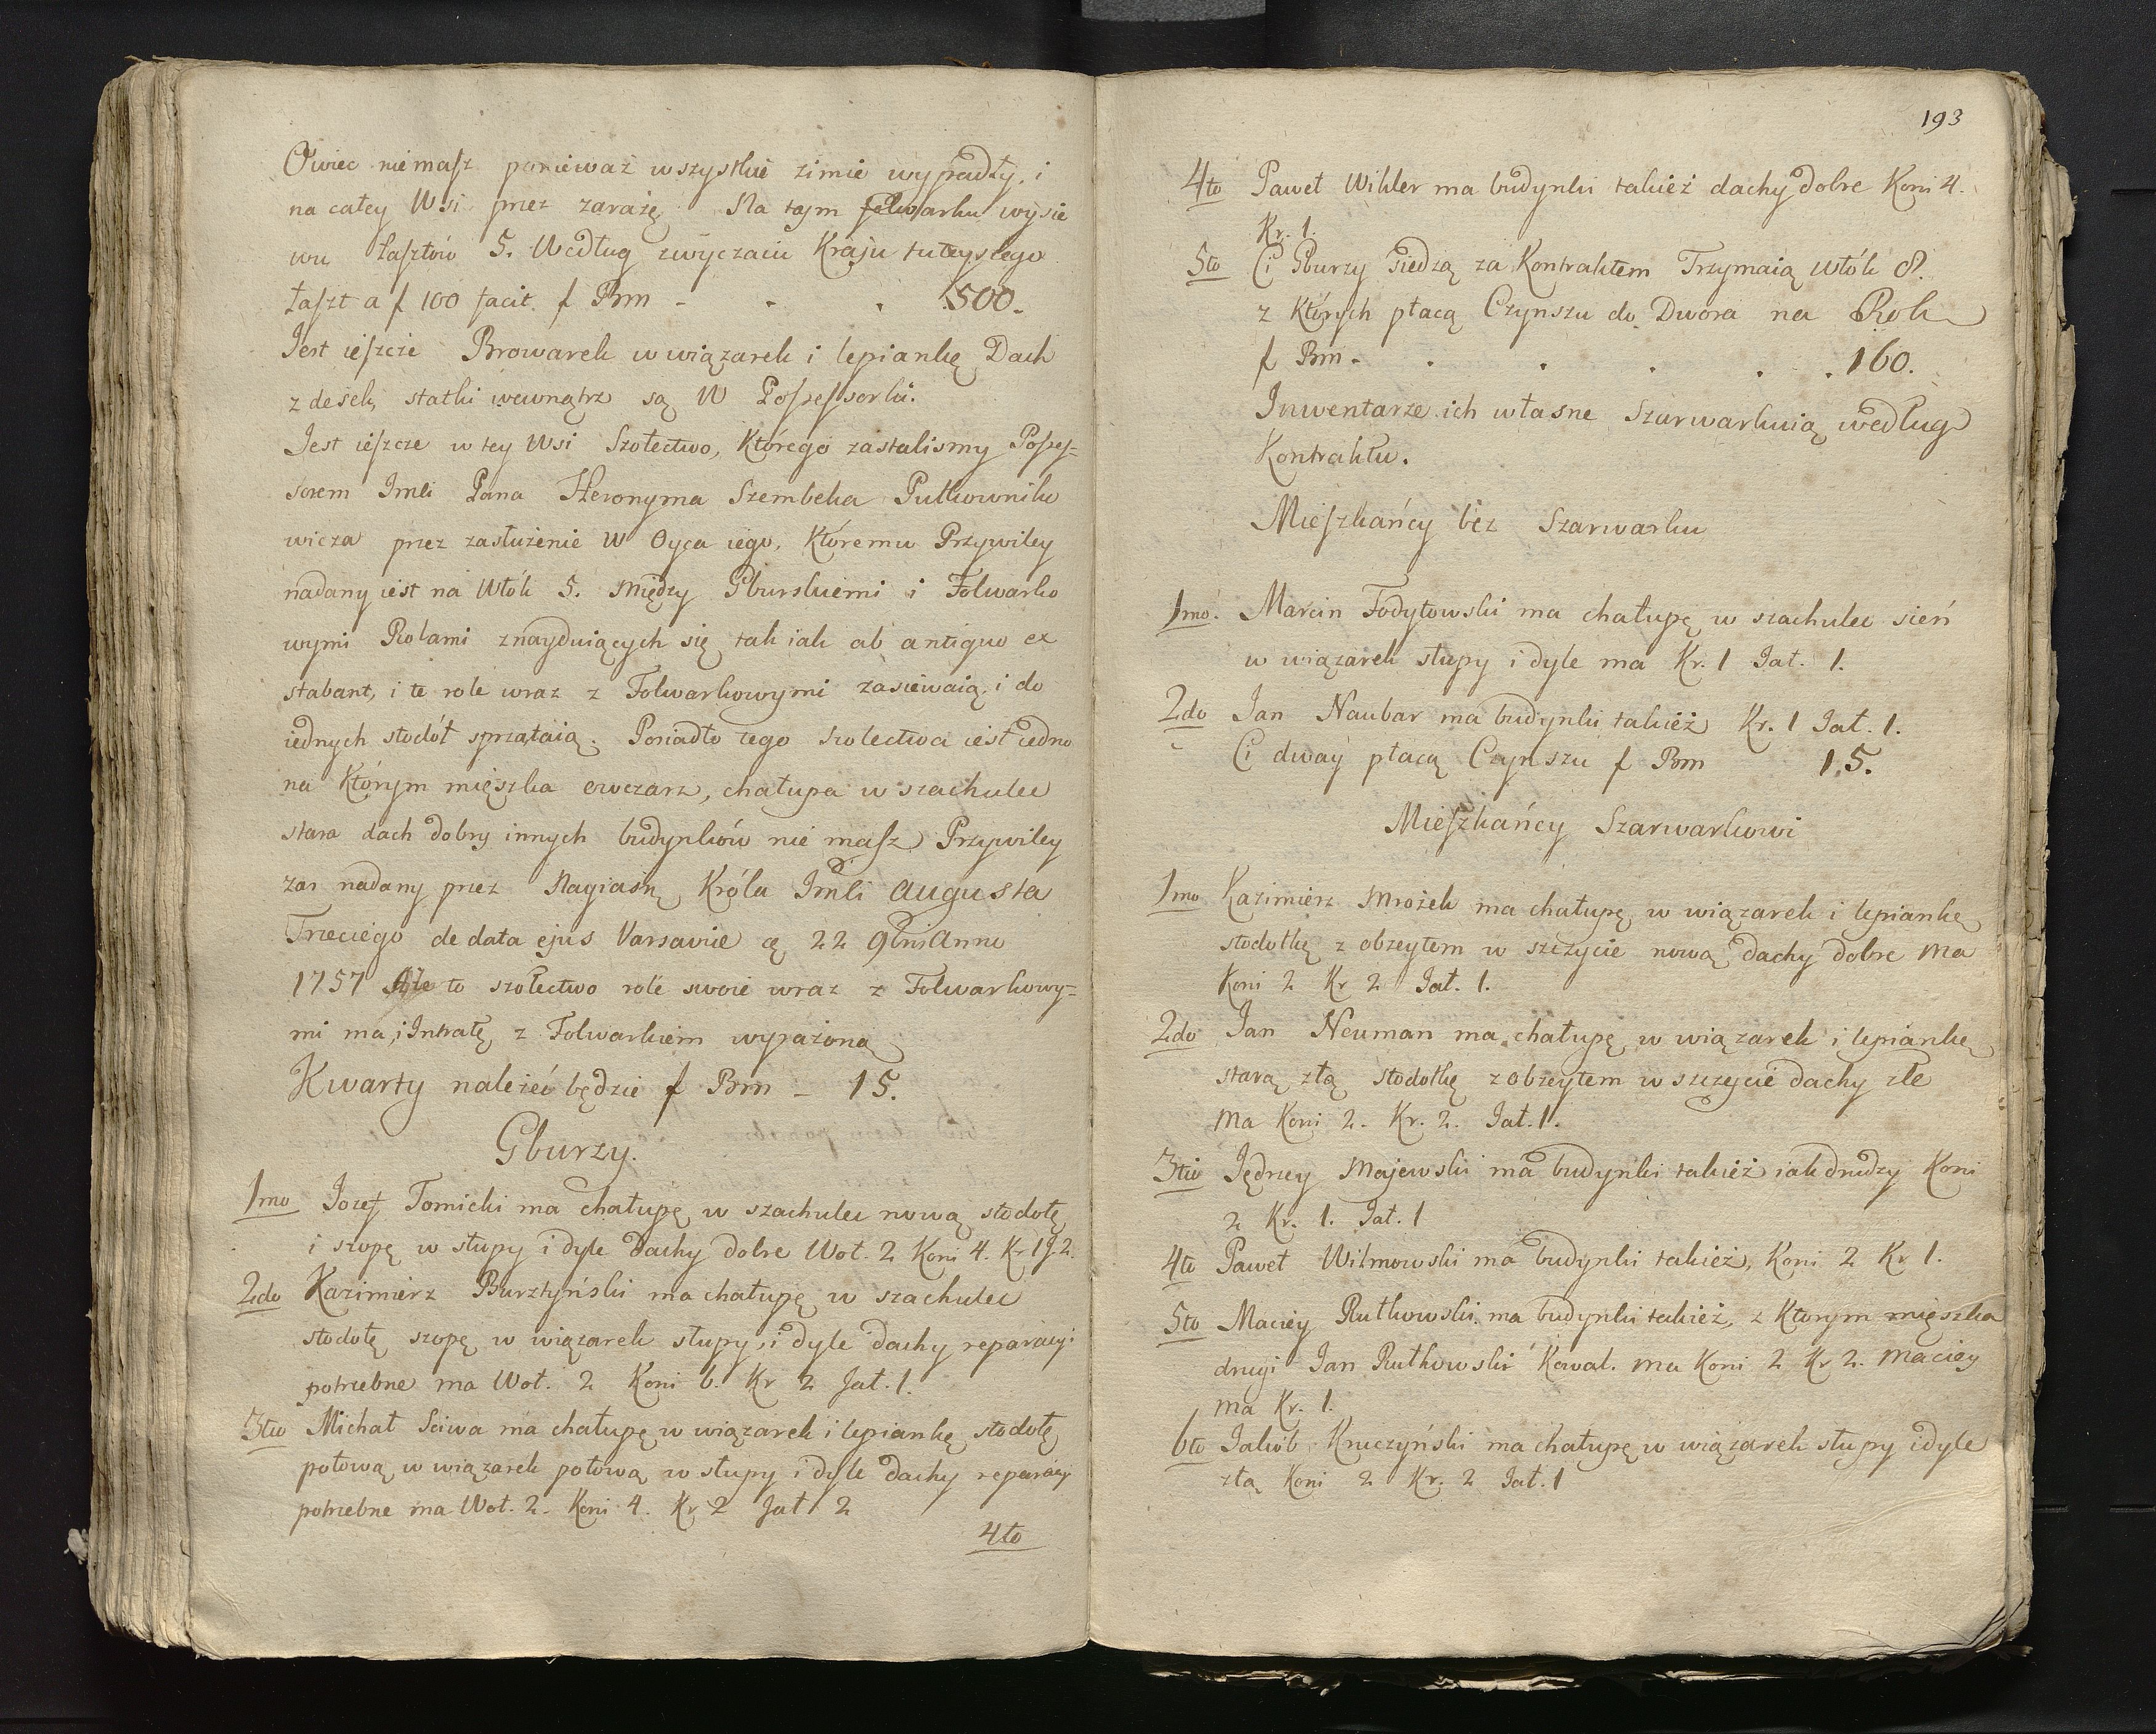 Owiec niemasz ponieważ wszystkie zimie wypadły, i
na całey Wsi przez zarażę Na tym folwarku wysie
wu łasztów 5. Według zwyczaiu Kraju tuteyszego
łaszt a f 100 facit f Prm - . . 500.
Jest ieszcze Browarek w wiązarek i lepiankę Dach
z desek, statki wewnątrz są W Possessorki.
Jest ieszcze w tey Wsi Szołectwo, Którego zastalismy Posses-
sorem Imći Pana Heronyma Szembeka Pułkowniko
wicza przez zasłużenie W Oyca iego, Któremu Przywiley
nadany iest na Włók 5. między Gburskiemi i Folwarko
wymi Rolami znayduiących się tak iak ab antiquo ex
stabant, i te role wraz z Folwarkowymi zasiewaią, i do
iednych stodół sprzątaią. Posiadło tego szolectwa iest iedno
na Którym mięszka owczarz, chałupa w szachulec
stara dach dobry innych budynków nie masz Przywiley
zas nadany przez Nayiaśn Króla Imći Augusta
Trzeciego de data ejus Varsaviæ 22 9bris Anno
1757 Ale to szołectwo role swoie wraz z Folwarkowy-
mi ma, i Intratę z Folwarkiem wyrażoną
Kwarty należeć będzie f Prm - 15.
Gburzy.
1mo Jozef Tomicki ma chałupę w szachulec nową stodołę
i szopę w słupy i dyle Dachy dobre Woł. 2 Koni 4. Kr 1 J. 2.
2do Kazimierz Bursztyński ma chałupę w szachulec
stodołę szopę w wiązarek słupy, i dyle dachy reparacyi
potrzebne ma Woł. 2 Koni 6. Kr 2 Jał. 1.
3tio Michał Sciwa ma chałupę w wiązarek i lepiankę stodołę
połową w wiązarek połową w słupy i dyle dachy reparacyi
potrzebne ma Woł. 2. Koni 4. Kr 2 Jał 2
4to
193
4to Paweł Wikler ma budynki takież dachy dobre Koni 4.
Kr. 1.
5to Ci Gburzy siedzą za Kontraktem Trzymaią włók 8.
z Których płacą Czynszu do Dwora na Rok
f Prm - . . . . . 160.
Inwentarze ich własne Szarwarkuią według
Kontraktu.
Mieszkańcy bez Szarwarku
1mo. Marcin Fodytowski ma chałupę w szachulec sień
w wiązarek słupy i dyle ma Kr. 1 Jał. 1.
2do Jan Naubar ma budynki takież Kr. 1 Jał. 1.
Ci dway płacą Czynszu f Prm 15.
Mieszkańcy Szarwarkowi
1mo Kazimierz Mrozek ma chałupę w wiązarek i lepiankę
stodołkę z obzeytem w szczycie nową dachy dobre ma
Koni 2 Kr 2 Jał. 1.
2do Jan Neuman ma chałupę w wiązarek i lepiankę
starą złą stodołkę z obzeytem w szczycie dachy złe
ma Koni 2. Kr. 2. Jał. 1.
3tio Jędrzey Majewski ma budynki takież iak drudzy Koni
2 Kr. 1. Jał. 1
4to Paweł Wilmowski ma budynki takież, Koni 2 Kr 1.
5to Maciey Rutkowski ma budynki takież, z Ktorym mięszka
drugi Jan Rutkowski Kowal. ma Koni 2 Kr 2. Maciey
ma Kr. 1.
6to Jakób Kruczyński ma chałupę w wiązarek słupy i dyle
złą Koni 2 Kr. 2 Jał. 1